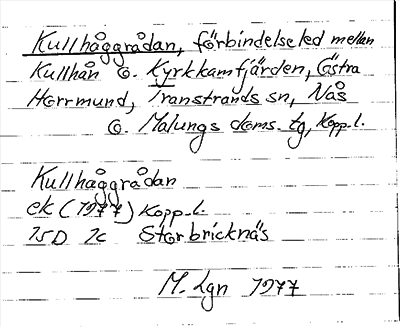 Kullhåggrådan, förbindelseled mellan
Kullhån o. Kyrkkamfjärden, Östra
Horrmund, Transtrands sn, Nås
o. Malungs doms. tg, Kopp.l.
Kullhåggrådan
ek (1977) Kopp.l.
15D 2c Storbricknäs
M. Lgn 1977